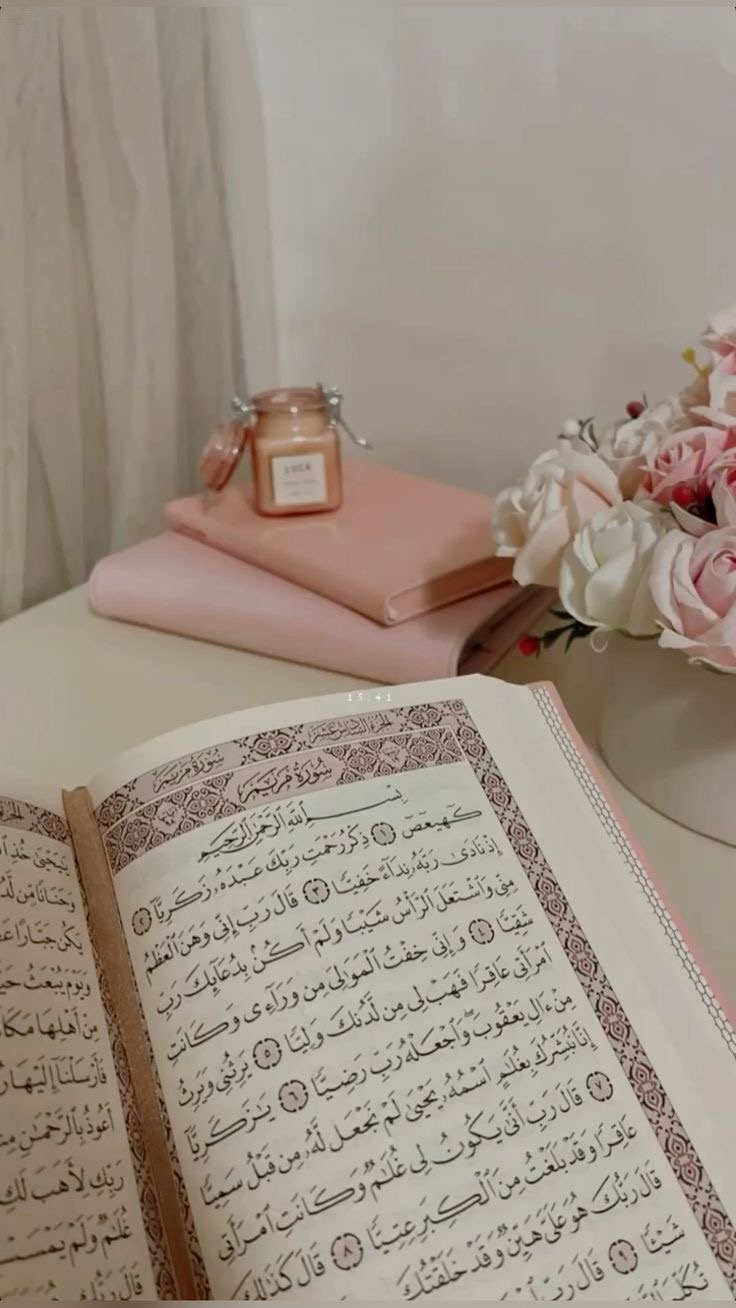 LUCA
15:41
سُورَةُ مَرْيَمَ الجُزْءُ السَّادِسَ عَشَرَ
سُورَةُ مَرْيَمَ
بِسْمِ اللَّهِ الرَّحْمَٰنِ الرَّحِيمِ
كٓهيعٓصٓ ١ ذِكْرُ رَحْمَتِ رَبِّكَ عَبْدَهُۥ زَكَرِيَّآ ٢
إِذْ نَادَىٰ رَبَّهُۥ نِدَآءً خَفِيًّا ٣ قَالَ رَبِّ إِنِّى وَهَنَ ٱلْعَظْمُ
مِنِّى وَٱشْتَعَلَ ٱلرَّأْسُ شَيْبًا وَلَمْ أَكُنۢ بِدُعَآئِكَ رَبِّ
شَقِيًّا ٤ وَإِنِّى خِفْتُ ٱلْمَوَٰلِىَ مِن وَرَآءِى وَكَانَتِ
ٱمْرَأَتِى عَاقِرًا فَهَبْ لِى مِن لَّدُنكَ وَلِيًّا ٥ يَرِثُنِى وَيَرِثُ
مِنْ ءَالِ يَعْقُوبَ وَٱجْعَلْهُ رَبِّ رَضِيًّا ٦ يَٰزَكَرِيَّآ
إِنَّا نُبَشِّرُكَ بِغُلَٰمٍ ٱسْمُهُۥ يَحْيَىٰ لَمْ نَجْعَل لَّهُۥ مِن قَبْلُ سَمِيًّا
٧ قَالَ رَبِّ أَنَّىٰ يَكُونُ لِى غُلَٰمٌ وَكَانَتِ ٱمْرَأَتِى
عَاقِرًا وَقَدْ بَلَغْتُ مِنَ ٱلْكِبَرِ عِتِيًّا ٨ قَالَ كَذَٰلِكَ
قَالَ رَبُّكَ هُوَ عَلَىَّ هَيِّنٌ وَقَدْ خَلَقْتُكَ
شَيْـًٔا ٩ قَالَ رَبِّ
تُكَلِّمَ
يَٰيَحْيَىٰ خُذِ
وَحَنَانًا مِّن
يَكُن جَبَّارًا
وَيَوْمَ يُبْعَثُ
مِنْ أَهْلِهَا
فَأَرْسَلْنَآ إِلَيْهَا
أَعُوذُ بِٱلرَّحْمَٰنِ
رَبِّكِ لِأَهَبَ لَكِ
غُلَٰمٌ وَلَمْ
قَالَ رَبُّكِ